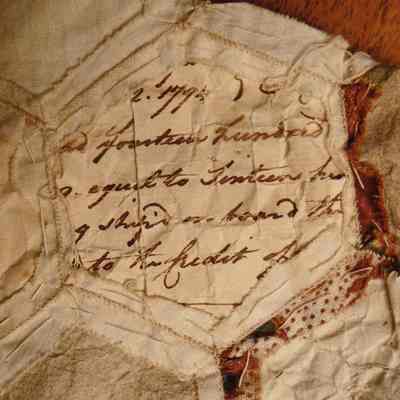 2d 1794
ed fourteen hundred
equal to Sixteen hu
g ship'd on board the
to the Credit of